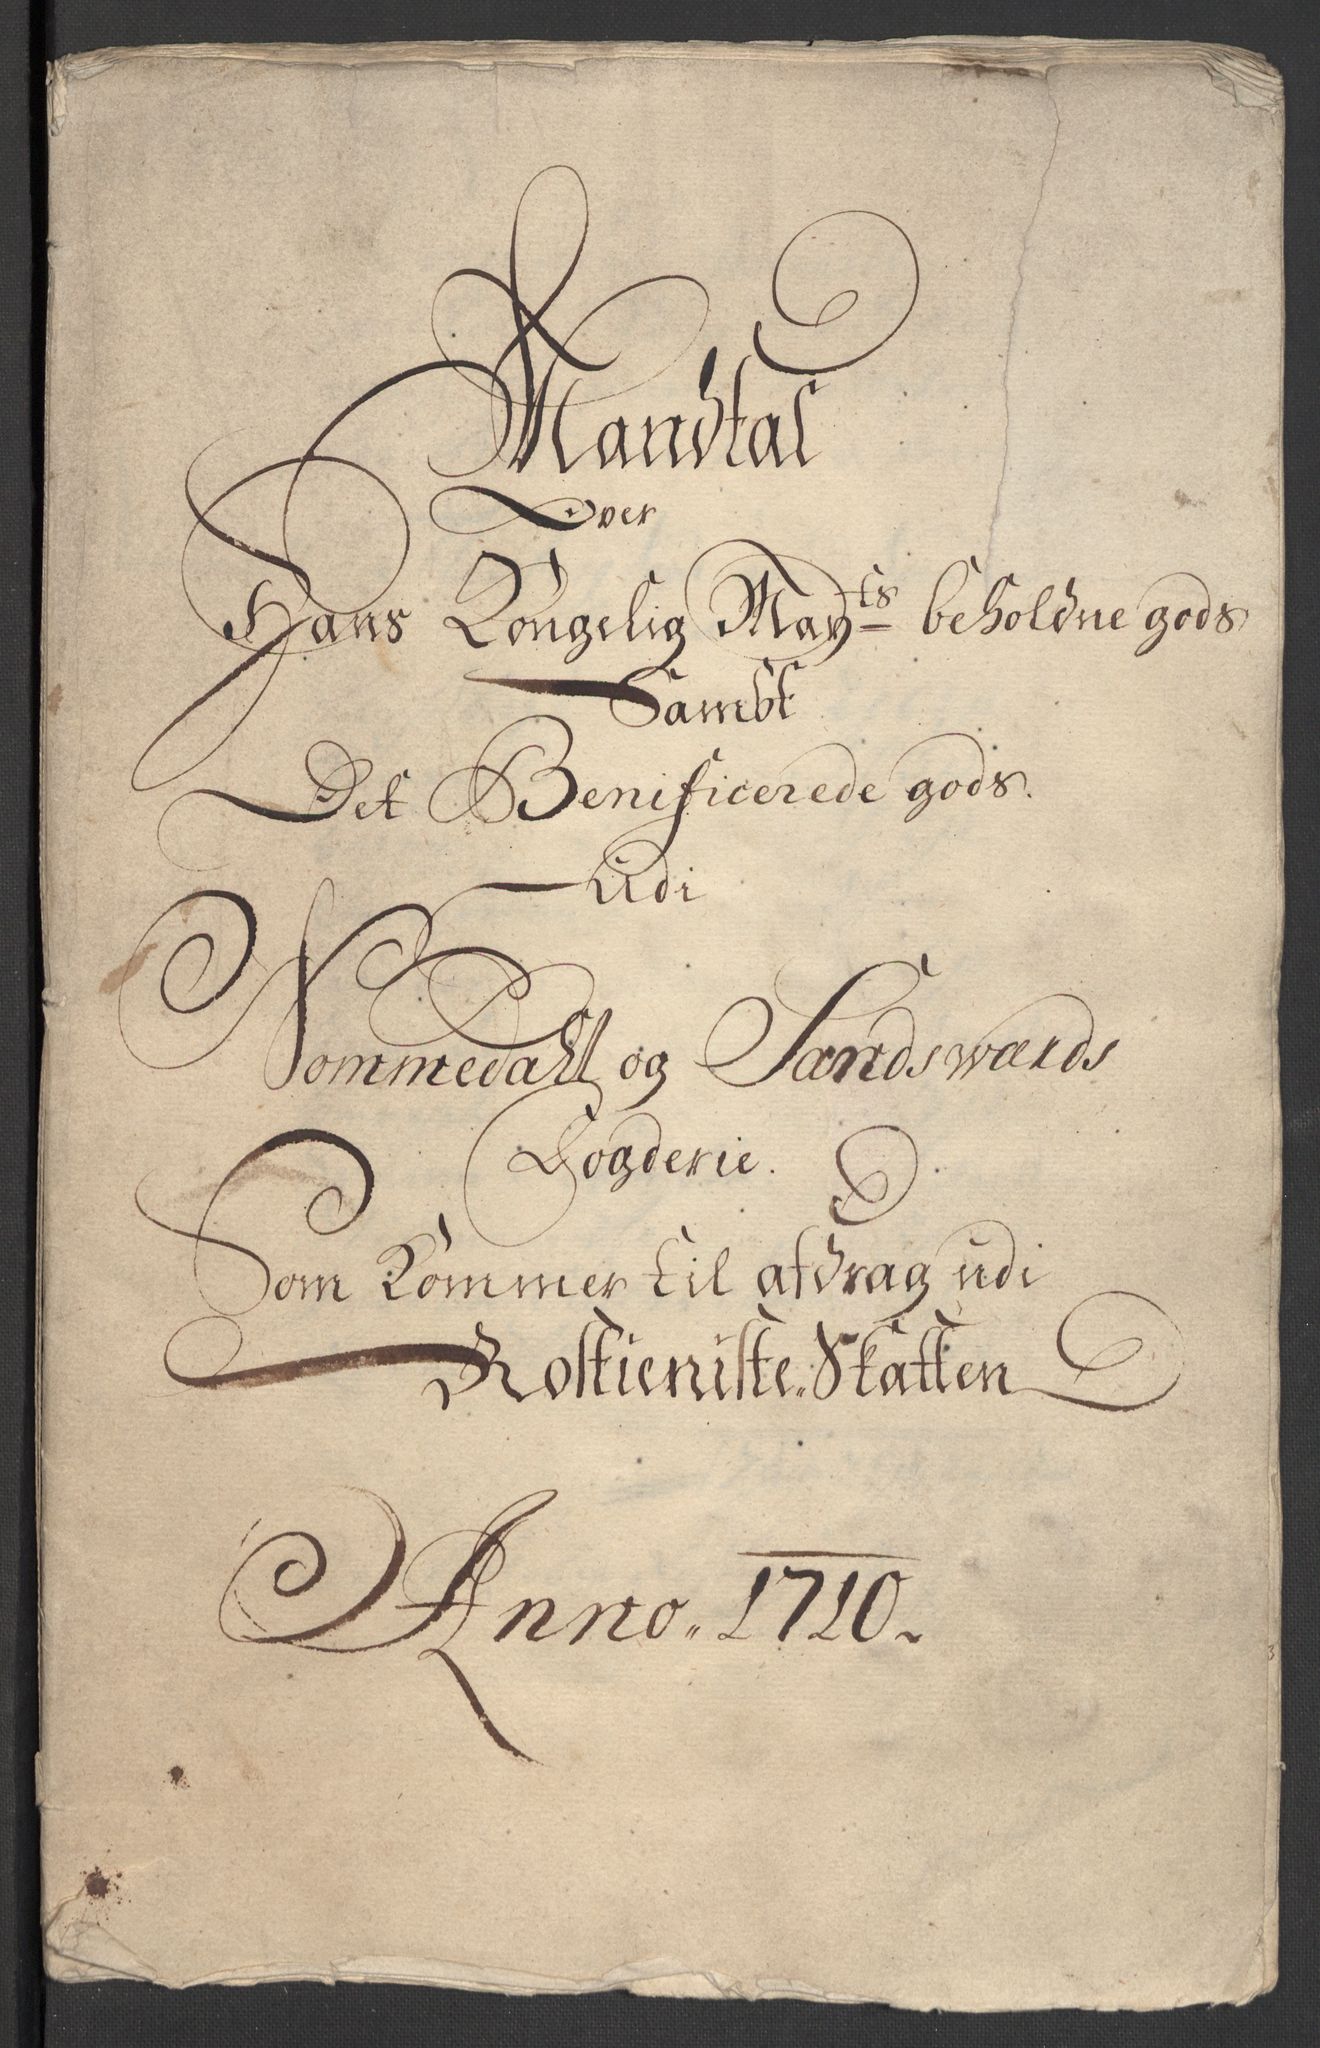 Mandtal
Over
Hans Kongelig May:ts beholdne gods
Sambt
Det Benificerede gods.
Udi
Nommedahl og Sandswærds
Fogderie.
Som Kommer til afdrag udi
Rostieniste Skatten
Anno. 1710.
3